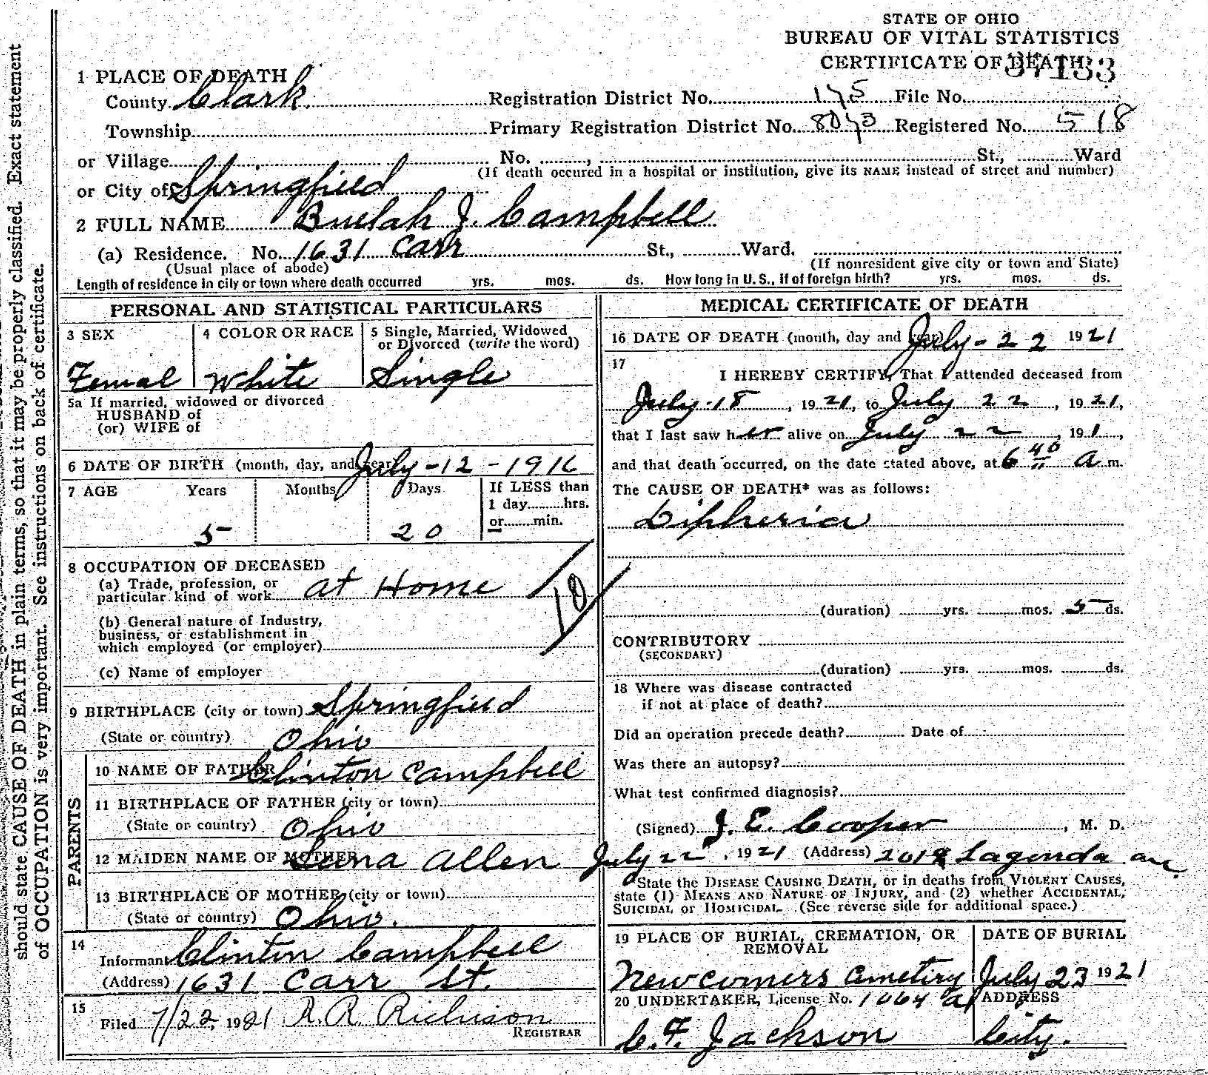 STATE OF OHIO
BUREAU OF VITAL STATISTICS
CERTIFICATE OF DEATH
37133
1 PLACE OF DEATH
County Clark Registration District No. 175 File No.
Township Primary Registration District No. 8073 Registered No. 518
or Village No. , St., Ward
(If death occured in a hospital or institution, give its NAME instead of street and number)
or City of Springfield
2 FULL NAME Buelah J. Campbell
(a) Residence. No. 1631 Carr St., Ward.
(Usual place of abode) (If nonresident give city or town and State)
Length of residence in city or town where death occurred yrs. mos. ds. How long in U.S., if of foreign birth? yrs. mos. ds.
PERSONAL AND STATISTICAL PARTICULARS
3 SEX 4 COLOR OR RACE 5 Single, Married, Widowed
or Divorced (write the word)
Femal White Single
5a If married, widowed or divorced
HUSBAND of
(or) WIFE of
6 DATE OF BIRTH (month, day, and year) July-12-1916
7 AGE Years Months Days If LESS than
1 day hrs.
or min.
5 20
8 OCCUPATION OF DECEASED
(a) Trade, profession, or
particular kind of work at Home
10
(b) General nature of Industry,
business, or establishment in
which employed (or employer)
(c) Name of employer
9 BIRTHPLACE (city or town) Springfield
(State or country) Ohio
PARENTS
10 NAME OF FATHER Clinton Campbell
11 BIRTHPLACE OF FATHER (city or town)
(State or country) Ohio
12 MAIDEN NAME OF MOTHER Luna Allen
13 BIRTHPLACE OF MOTHER (city or town)
(State or country) Ohio.
14
Informant Clinton Campbell
(Address) 1631 Carr St.
15
Filed 7/22, 1921 R. R. Richison
REGISTRAR
MEDICAL CERTIFICATE OF DEATH
16 DATE OF DEATH (month, day and year) July-22 1921
17
I HEREBY CERTIFY, That I attended deceased from
July-18, 1921, to July 22, 1921,
that I last saw her alive on July 22, 191 ,
and that death occurred, on the date stated above, at 6 40 a m.
The CAUSE OF DEATH* was as follows:
Diptheria
(duration) yrs. mos. 5 ds.
CONTRIBUTORY
(SECONDARY)
(duration) yrs. mos. ds.
18 Where was disease contracted
if not at place of death?
Did an operation precede death? Date of
Was there an autopsy?
What test confirmed diagnosis?
(Signed) J. E. Cooper, M. D.
July 22, 1921 (Address) 2019 Lagonda av
State the DISEASE CAUSING DEATH, or in deaths from VIOLENT CAUSES,
state (1) MEANS AND NATURE OF INJURY, and (2) whether ACCIDENTAL,
SUICIDAL or HOMICIDAL. (See reverse side for additional space.)
19 PLACE OF BURIAL, CREMATION, OR
REMOVAL
DATE OF BURIAL
Newcomers Cmetiry July 23 1921
20 UNDERTAKER, License No. 1064 a ADDRESS
C. F. Jackson City.
should state CAUSE OF DEATH in plain terms, so that it may be properly classified. Exact statement
of OCCUPATION is very important. See instructions on back of certificate.